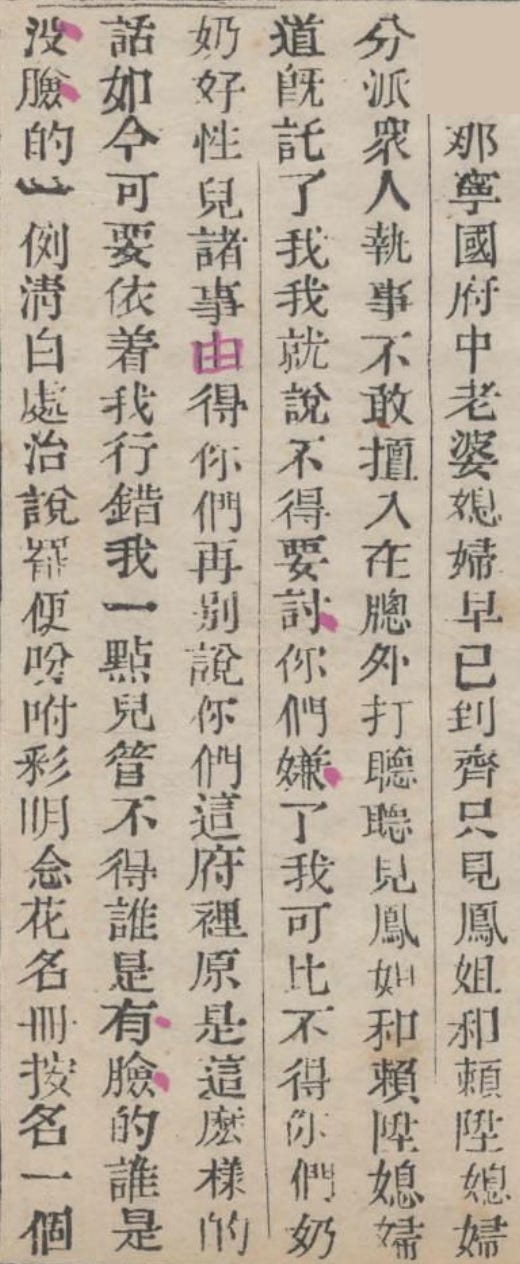 那寧國府中老婆媳婦早已到齊只見鳳姐和賴陞媳婦
分派衆人執事不敢擅入在牕外打聽聽見鳳姐和賴陞媳婦
道旣託了我我就說不得要討你們嫌了我可比不得你們奶
奶好性兒諸事由得你們再别說你們這府裡原是這麽樣的
話如今可要依着我行錯我一點兒管不得誰是有臉的誰是
没臉的一例清白處治說罷便吩咐彩明念花名冊按名一個